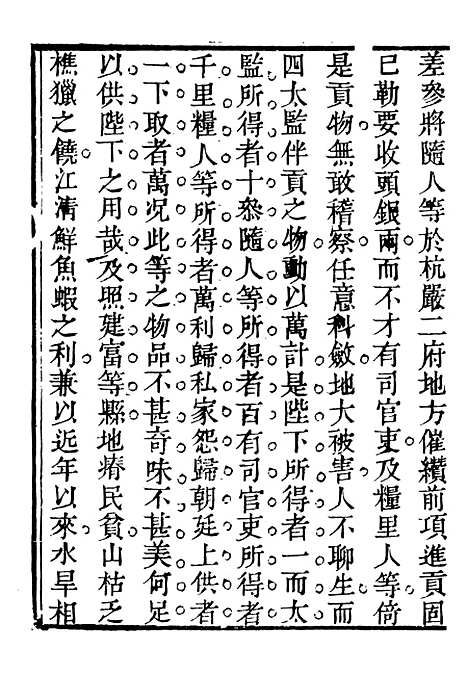 差參將隨人等於杭嚴二府地方催䌫前項進貢固
已勒要收頭銀兩而不才有司官吏及糧里人等倚
是貢物無敢稽察任意科斂地大被害人不聊生而
四太監伴貢之物動以萬計是陛下所得者一而太
監所得者十叅隨人等所得者百有司官吏所得者
千里糧人等所得者萬利歸私家怨歸朝廷上供者
一下取者萬况此等之物品不甚奇味不甚美何足
以供陛下之用哉及照建富等縣地瘠民貧山枯乏
樵獵之饒江清鮮魚蝦之利兼以近年以來水旱相